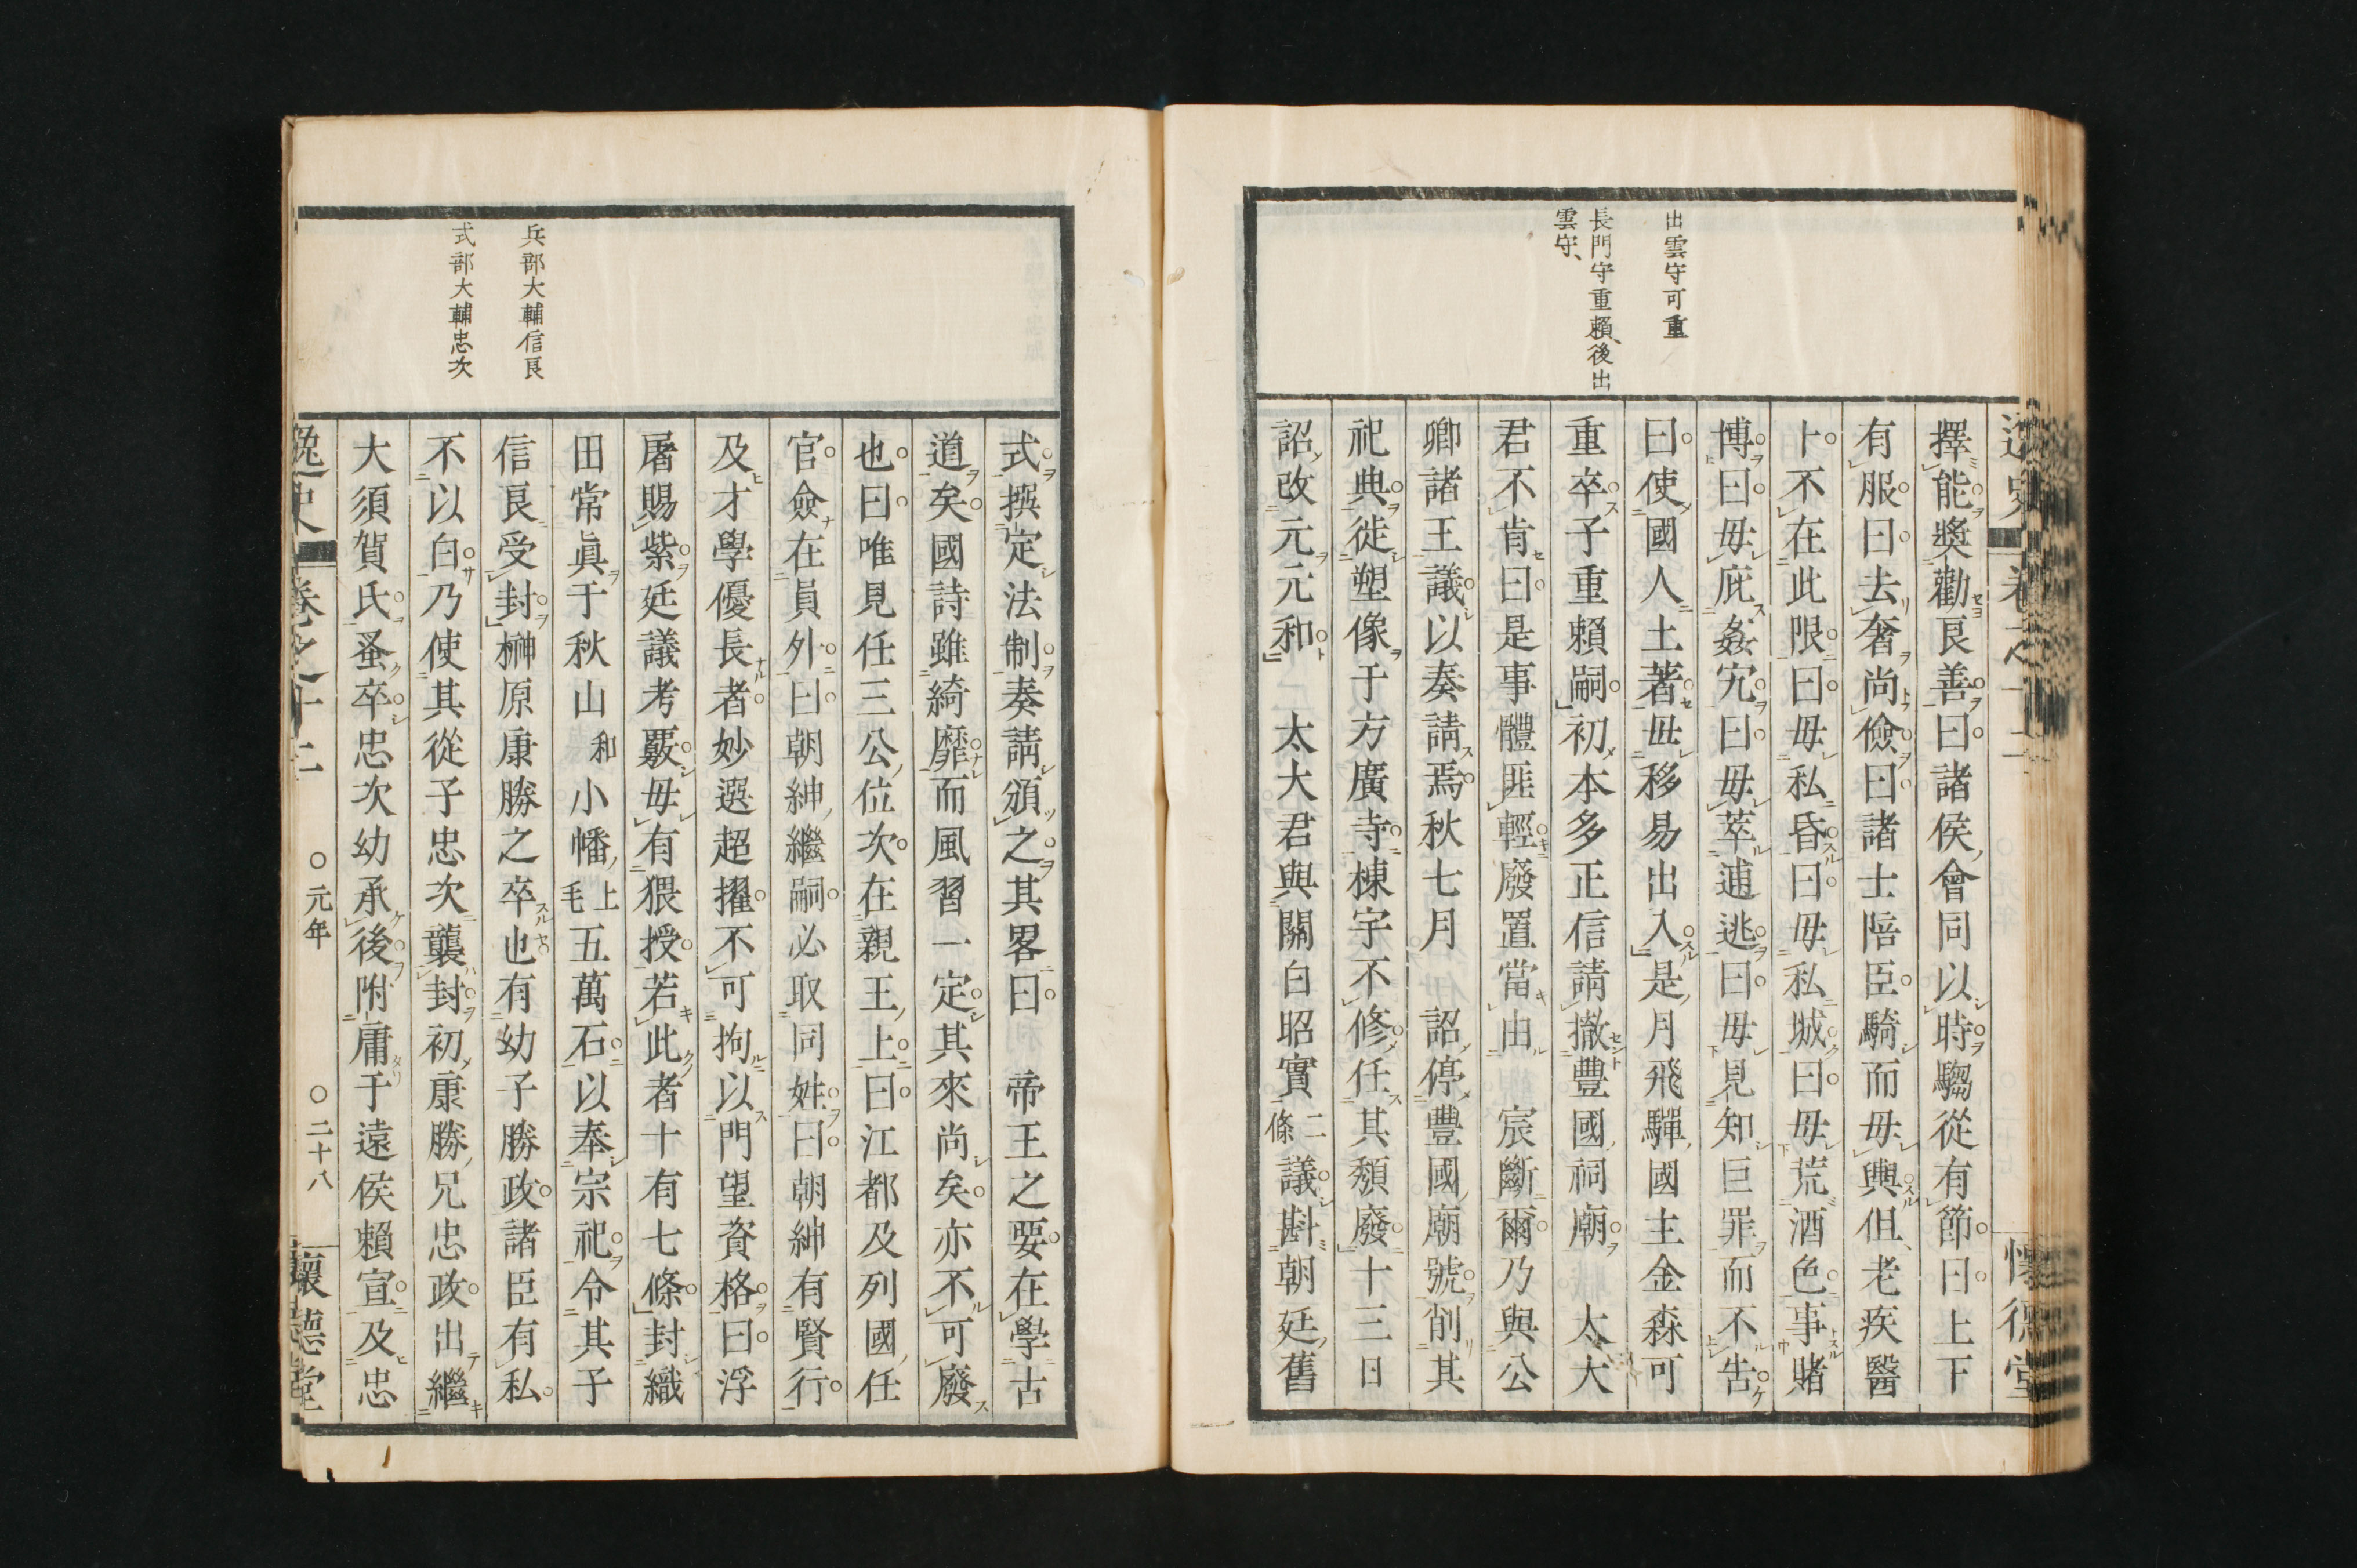 出雲守可重
長門守重賴、後出
雲守、
擇能奬勸良善曰諸侯會同以時騶從有節曰上下
有服曰去奢尚儉曰諸士陪臣騎而毋輿但老疾醫
卜不在此限曰毋私昏曰毋私城曰毋荒酒色事賭
博曰毋庇姦宄曰毋萃逋逃曰毋見知巨罪而不告
曰使國人土著毋移易出入是月飛驒國主金森可
重卒子重賴嗣初本多正信請撤豐國祠廟 太大
君不肯曰是事體匪輕廢置當由 宸斷爾乃與公
卿諸王議以奏請焉秋七月 詔停豐國廟號削其
祀典徙塑像于方廣寺棟宇不修任其頽廢十三日
詔改元元和 太大君與關白昭實二條議斟朝廷舊
兵部大輔信良
式部大輔忠次
式撰定法制奏請頒之其畧曰 帝王之要在學古
道矣國詩雖綺靡而風習一定其來尚矣亦不可廢
也曰唯見任三公位次在親王上曰江都及列國任
官僉在員外曰朝紳繼嗣必取同姓曰朝紳有賢行
及才學優長者妙選超擢不可拘以門望資格曰浮
屠賜紫廷議考覈毋有猥授若此者十有七條封織
田常眞于秋山和小幡上毛五萬石以奉宗祀令其子
信良受封榊原康勝之卒也有幼子勝政諸臣有私
不以白乃使其從子忠次襲封初康勝兄忠政出繼
大須賀氏蚤卒忠次幼承後附庸于遠侯賴宣及忠
逸史 卷之十二 ○元年 ○二十八 懷德堂